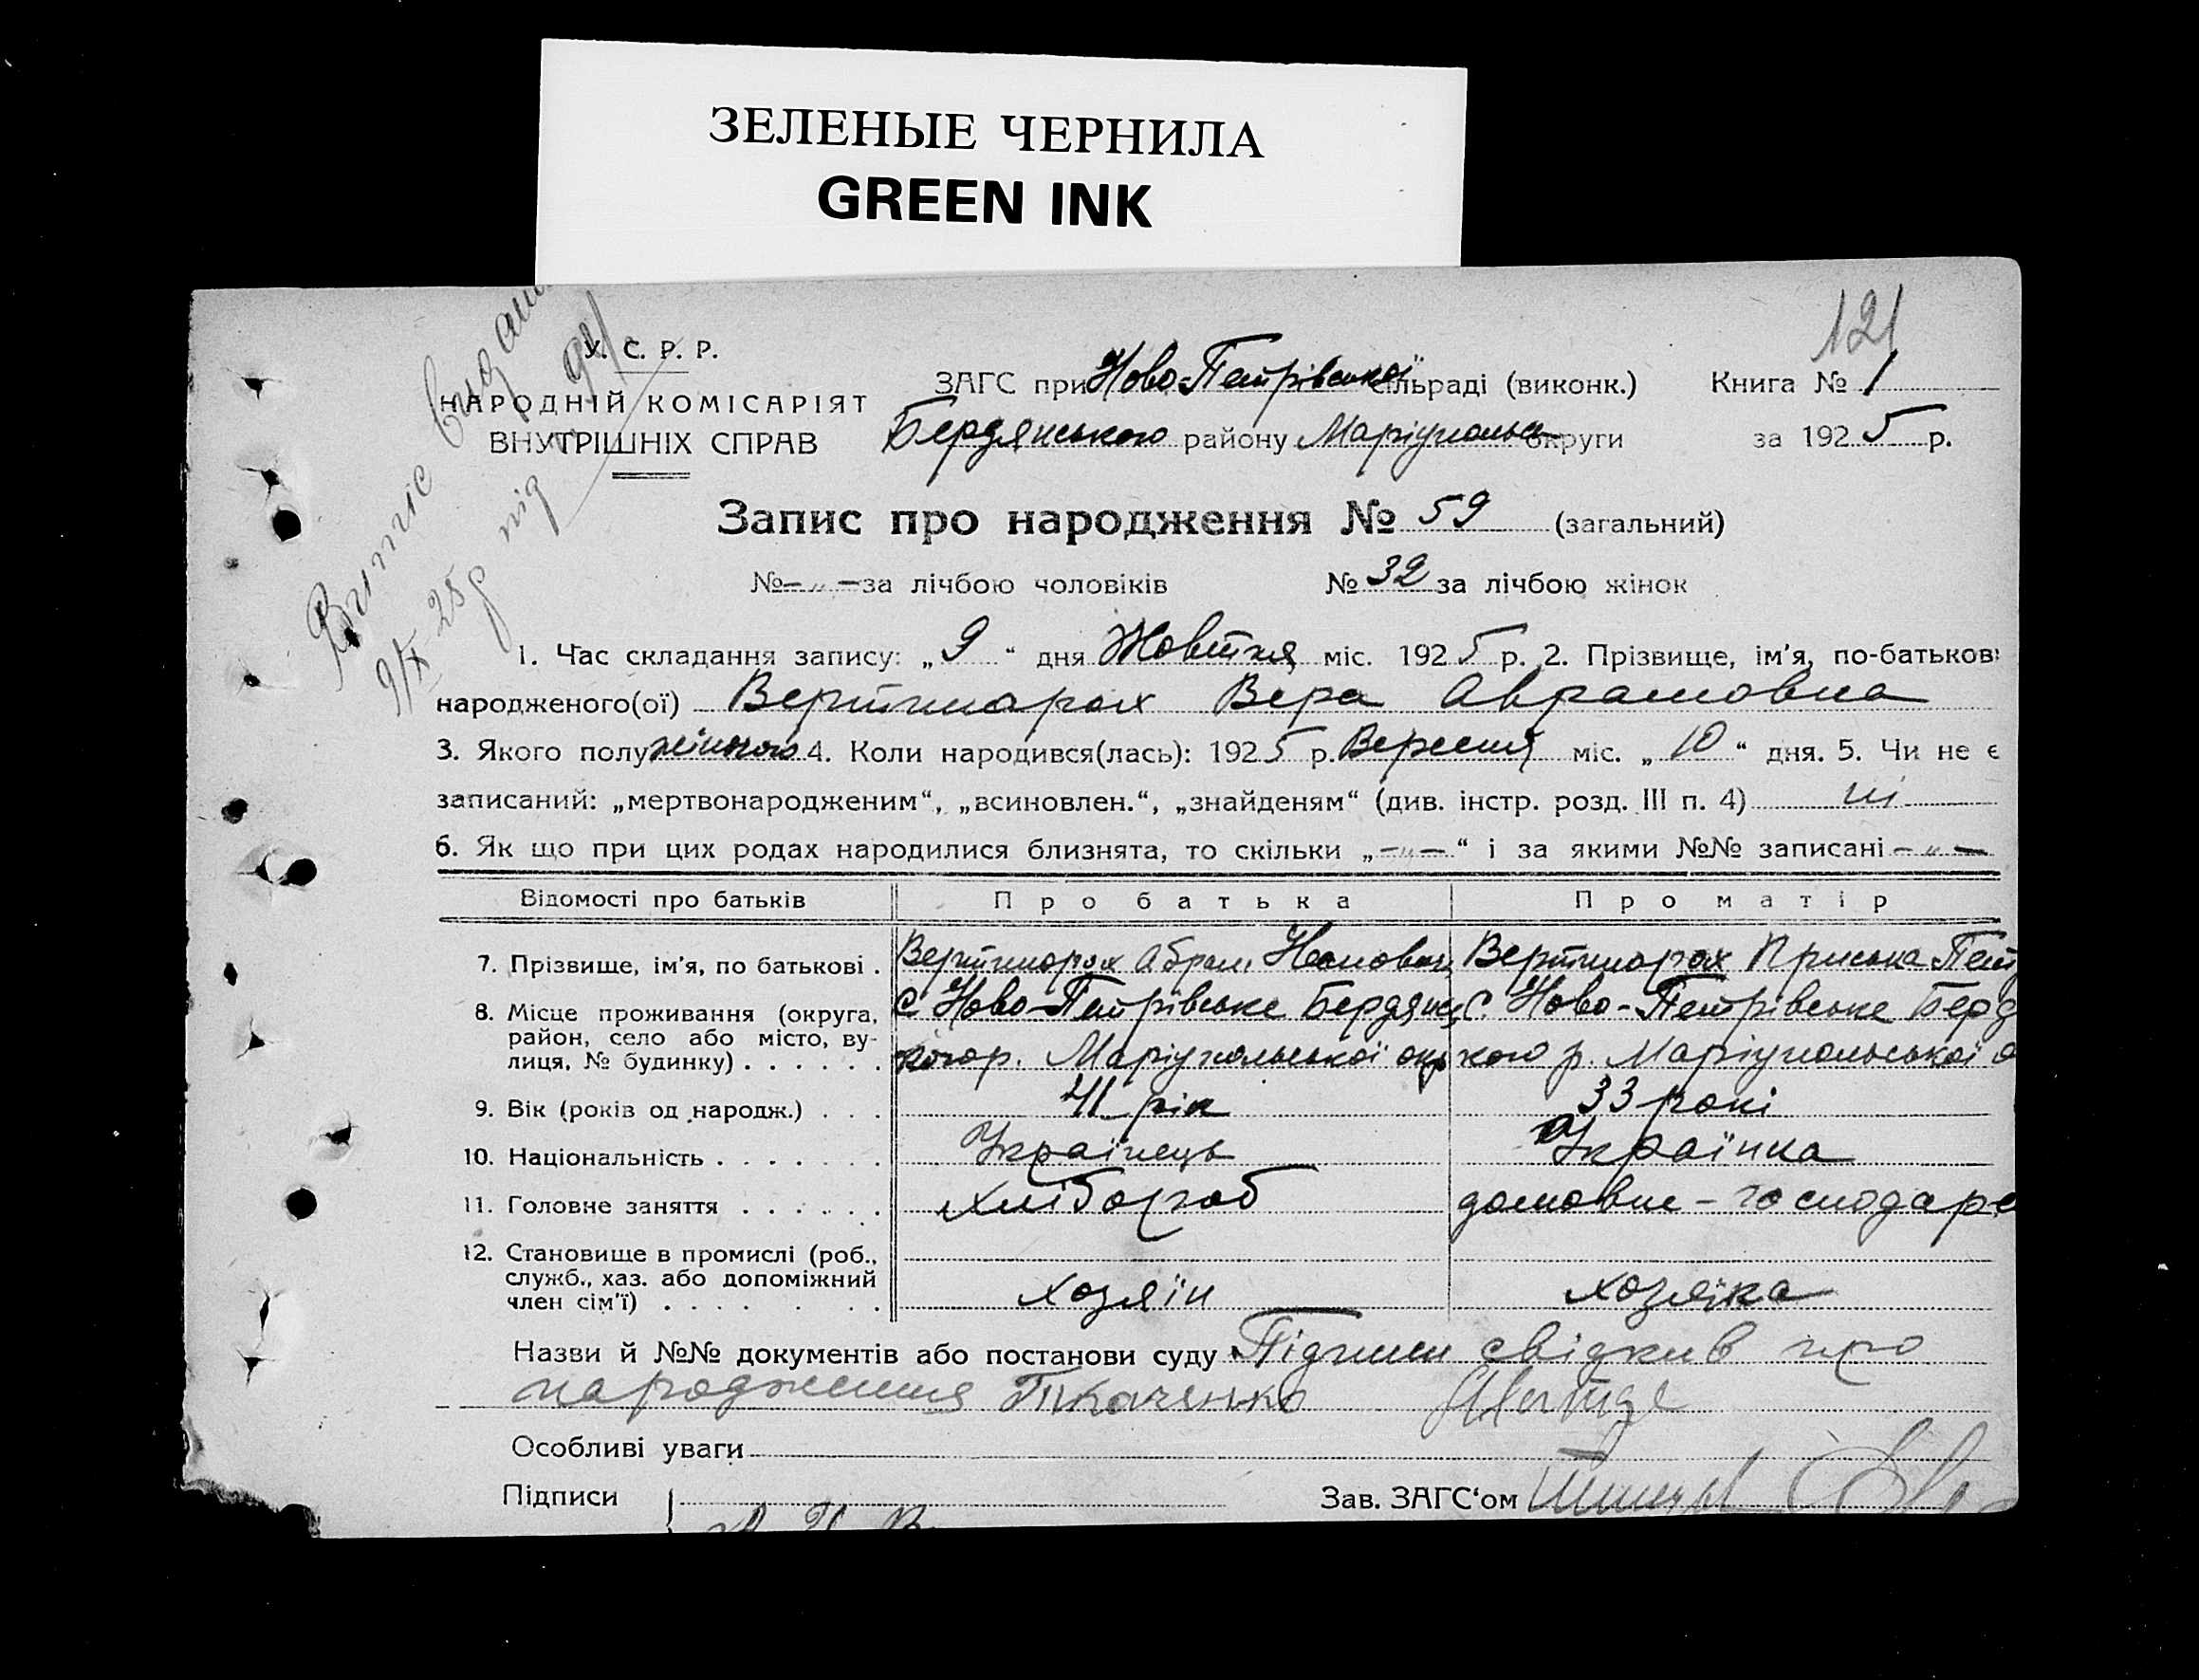 ЗЕЛЕНЫЕ ЧЕРНИЛА
GREEN INK
121
У. С. Р. Р.
НАРОДНІЙ КОМІСАРІЯТ
ВНУТРІШНІХ СПРАВ
Витяг видан
9/X 25 р під
ЗАГС при Ново-Петрівської сільраді (виконк.) Книга № 1
Бердянського району Маріупольсь округи за 1925 р.
Запис про народження № 59 (загальний)
№ -„- за лічбою чоловіків № 32 за лічбою жінок
1. Час складання запису: „9“ дня Жовтня міс. 1925 р. 2. Прізвище, ім'я, по-батькові
народженого(ої) Вертипорох Вера Аврамовна
3. Якого полу жіночого 4. Коли народився(лась): 1925 р. Вересня міс. „10“ дня. 5. Чи не є
записаний: „мертвонародженим“, „всиновлен.“, „знайденям“ (див. інстр. розд. III п. 4) ні
6. Як що при цих родах народилися близнята, то скільки „-„-“ і за якими №№ записані -„-
Відомості про батьків Про батька Про матір
7. Прізвище, ім'я, по батькові . Вертипорох Абрам Вертипорох Приська Пет
8. Місце проживання (округа, район, село або місто, вулиця, № будинку) . . . . . . С Ново-Петрівське Бердянс С. Ново-Петрівське Берд
кого р. Маріупольської окр кого р. Маріупольської о
9. Вік (років од народж.) . . . 41 рік 33 рокі
10. Національність . . . . . . . Українець Українка
11. Головне заняття . . . . . . хлібороб домовне-господарс
12. Становище в промислі (роб., служб., хаз. або допоміжний член сім'ї) . . . . . . . хозяїн хозяїка
Назви й №№ документів або постанови суду Підписи свідкив про
народження Ткаченко
Особливі уваги
Підписи Зав. ЗАГС'ом